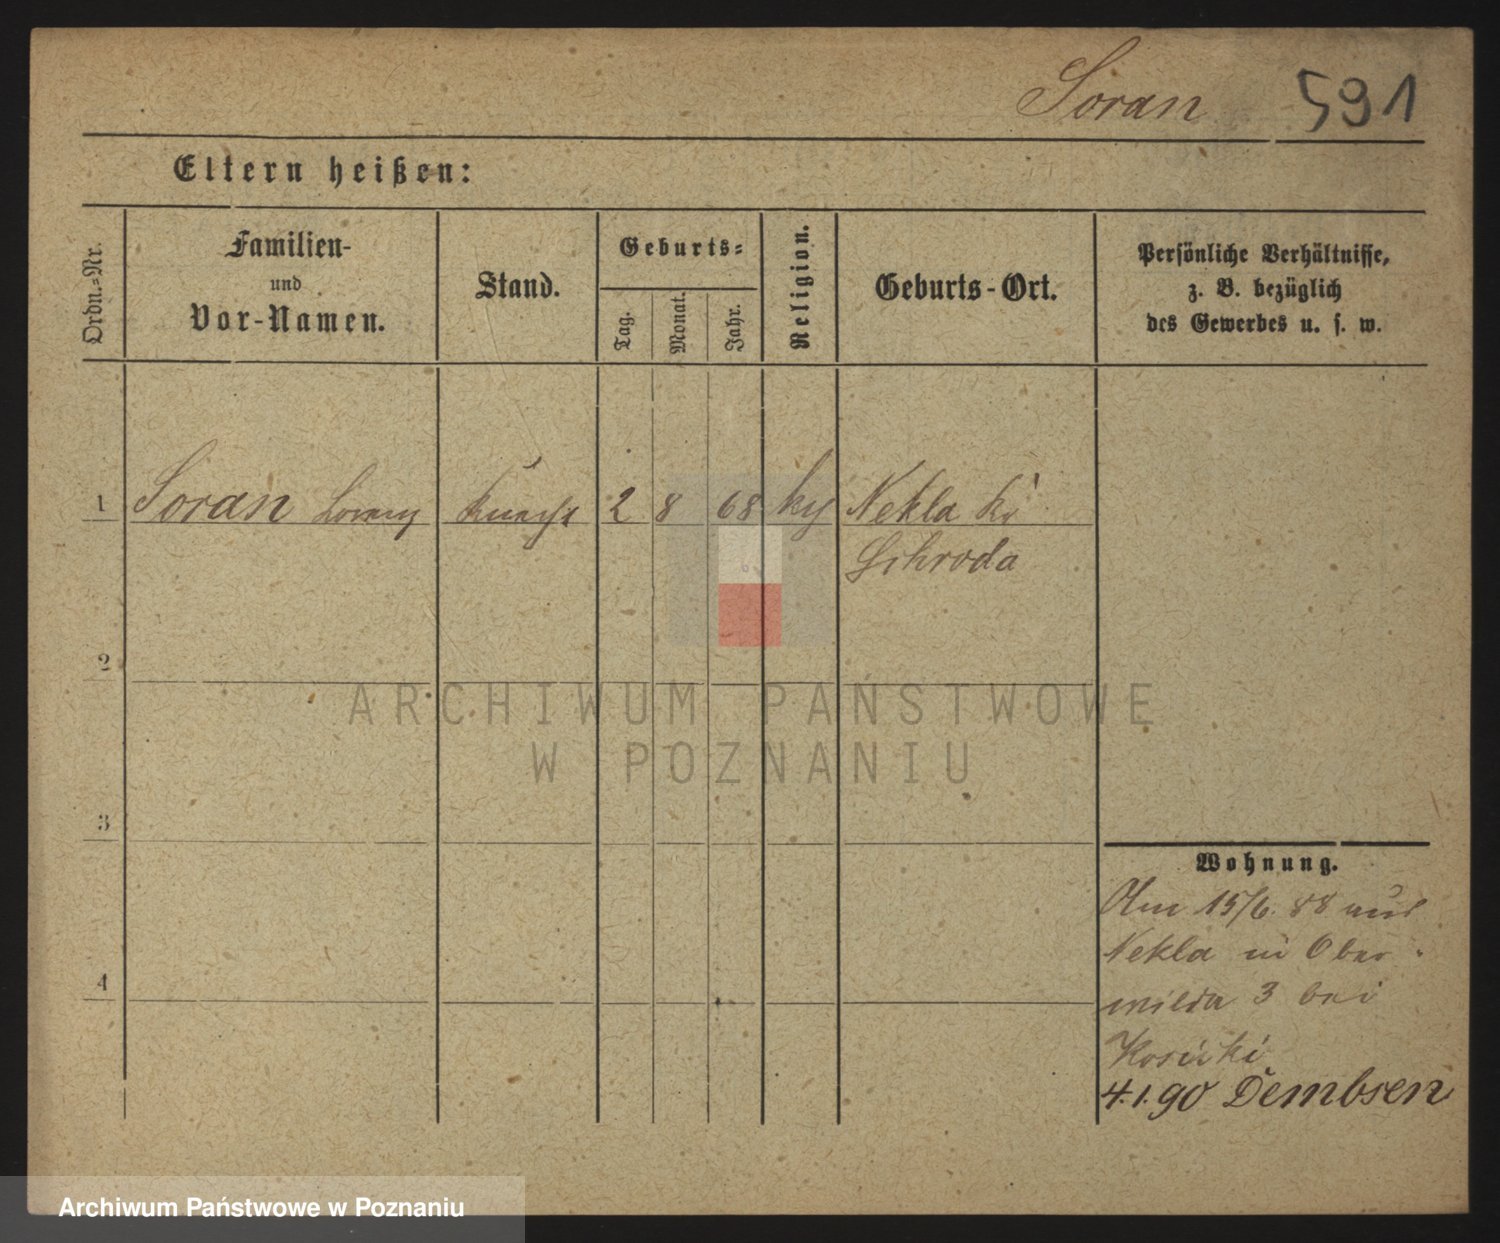 Soran 591
Eltern heißen:
Ordn.-Nr.
Familien-
und
Vor-Namen.
Stand.
Geburts-
Tag.
Monat.
Jahr.
Religion.
Geburts-Ort.
Persönliche Verhältnisse,
z. B. bezüglich
des Gewerbes u. s. w.
1 Soran Lorenz Knecht 2 8 68 Nekla Kr
Schroda
2
3
4
Wohnung.
Am 15/6. 88 aus
Nekla in Ober-
wilda 3 bei
Kosicki
4.1.90 Dembsen
ARCHIWUM PAŃSTWOWE
W POZNANIU
Archiwum Państwowe w Poznaniu